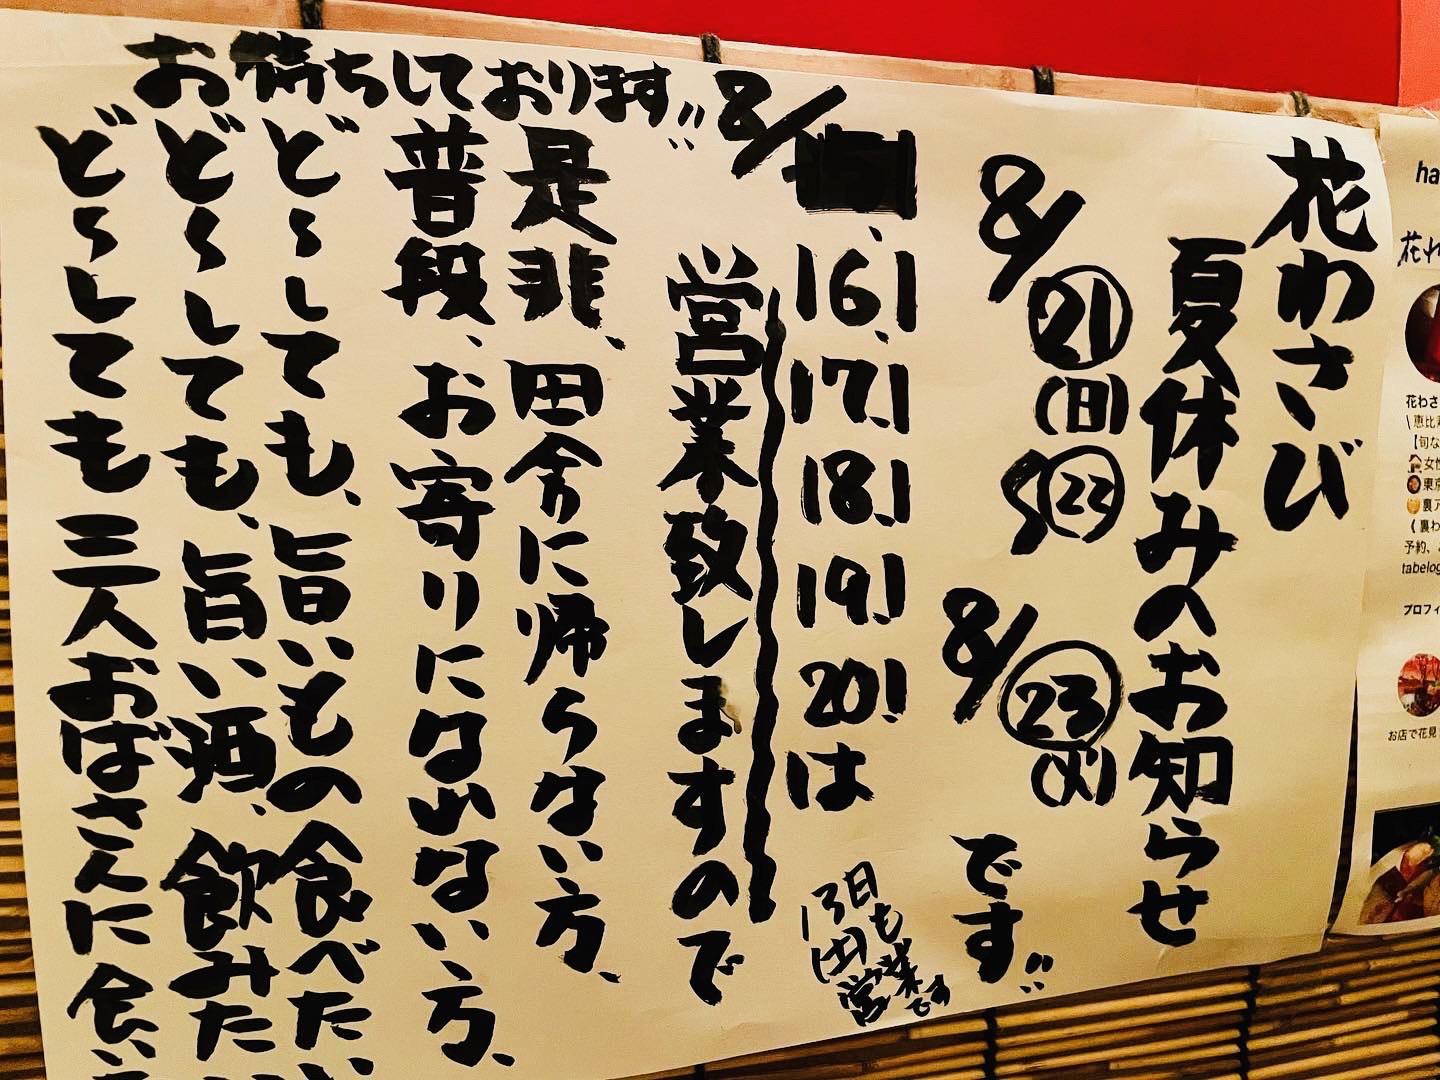 花わさび
夏休みのお知らせ
8/21(日)
〜22
8/23(火)
です〃
8/
、16、17、18、19、20は
13日
(土)も
営業
です
営業致しますので
是非、田舎に帰らない方、
普段、お寄りになれない方、
ど〜しても、旨いもの食べたい
ど〜しても、旨い酒、飲みた
ど〜しても三人おばさんに会い
お待ちしております〃
ha
花わ
花わさ
\恵比寿
【旬な
女性
東京
裏ア
(裏わ
予約、
tabelog
プロフィ
お店で花見